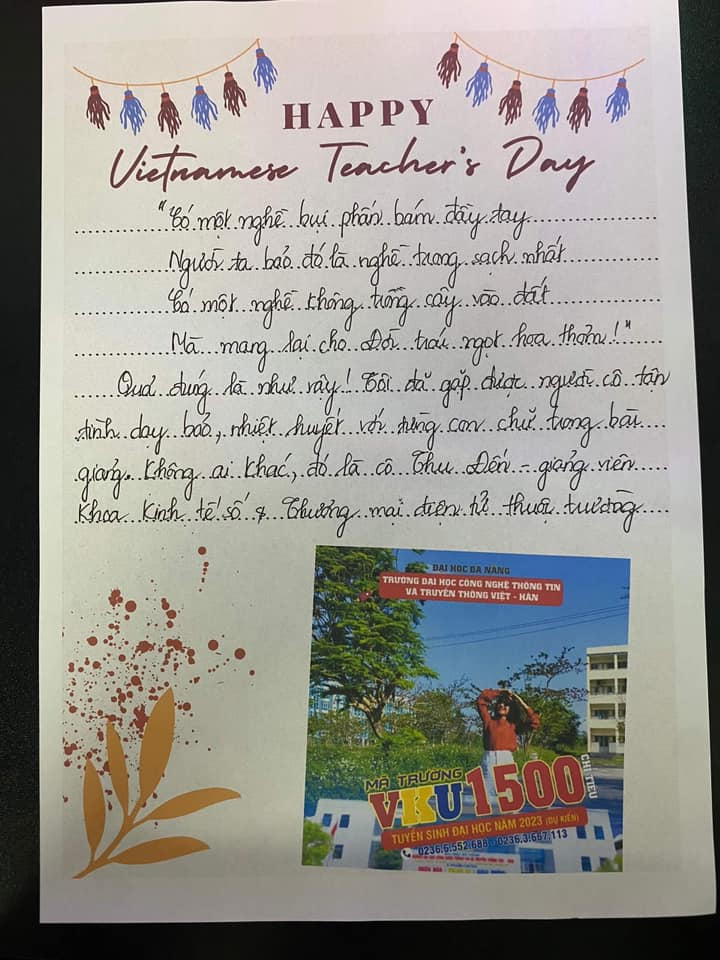 HAPPY
Vietnamese Teacher's Day
"Có một nghề bụi phấn bám đầy tay
Người ta bảo đó là nghề trong sạch nhất
Có một nghề không trồng cây vào đất
Mà mang lại cho Đời trái ngọt hoa thơm!"
Quả đúng là như vậy! Tôi đã gặp được người cô tận
tình dạy bảo, nhiệt huyết với từng con chữ trong bài
giảng. Không ai khác, đó là cô Thu Đến - giảng viên
Khoa Kinh tế số & Thương mại điện tử thuộc trường
ĐẠI HỌC ĐÀ NẴNG
TRƯỜNG ĐẠI HỌC CÔNG NGHỆ THÔNG TIN
VÀ TRUYỀN THÔNG VIỆT - HÀN
MÃ TRƯỜNG
VKU 1500 CHỈ TIÊU
TUYỂN SINH ĐẠI HỌC NĂM 2023 (DỰ KIẾN)
0236.6.552.688 - 0236.3.667.113